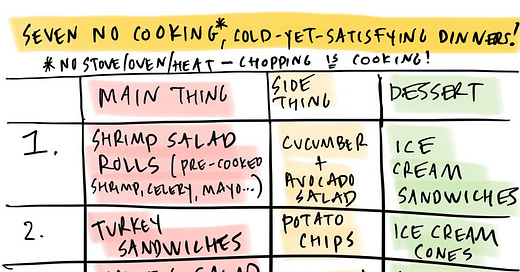 SEVEN NO COOKING*, COLD-YET-SATISFYING DINNERS!
*NO STOVE/OVEN/HEAT – CHOPPING IS COOKING!
MAIN THING
SIDE THING
DESSERT
1.
SHRIMP SALAD
ROLLS (PRE-COOKED
SHRIMP, CELERY, MAYO...)
CUCUMBER
+
AVOCADO
SALAD
ICE
CREAM
SANDWICHES
2.
TURKEY
SANDWICHES
POTATO
CHIPS
ICE CREAM
CONES